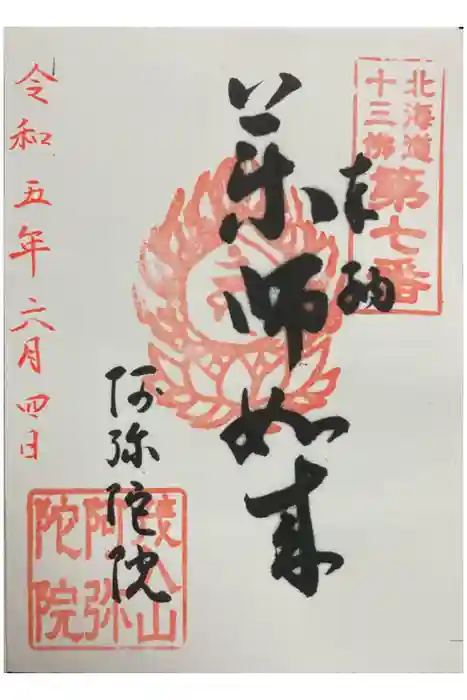 北海道
十三佛
第七番
奉納
薬師如来
阿弥陀院
令和五年六月四日
山
阿弥
陀院